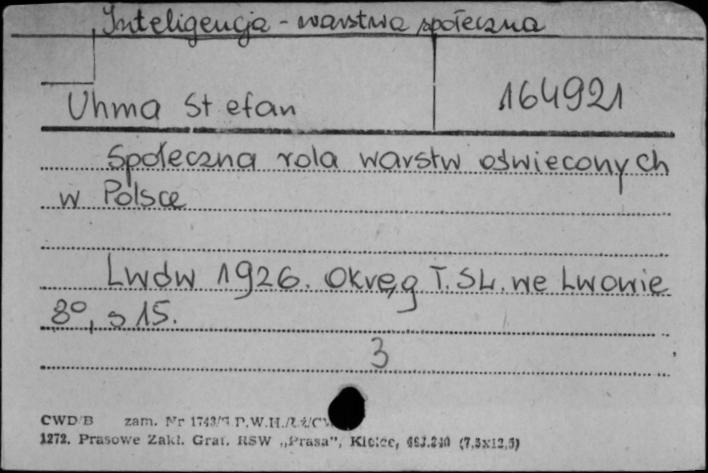 Inteligencja - warstwa społeczna
Uhma Stefan 164921
Społeczna rola warstw oświeconych
w Polsce
Lwów 1926. Okręg T.S.L. we Lwowie
8°, s 15.
3
CWD/B zam. Nr P.W.H.
1272. Prasowe Zakł. Graf. RSW „Prasa”, Kielce, (7,5x12,5)